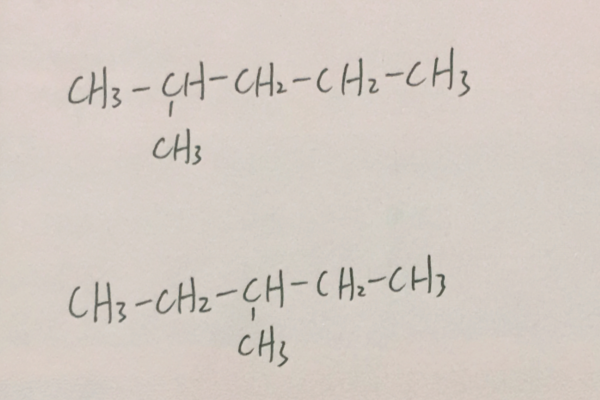 CH₃-CH-CH₂-CH₂-CH₃
CH₃
CH₃-CH₂-CH-CH₂-CH₃
CH₃